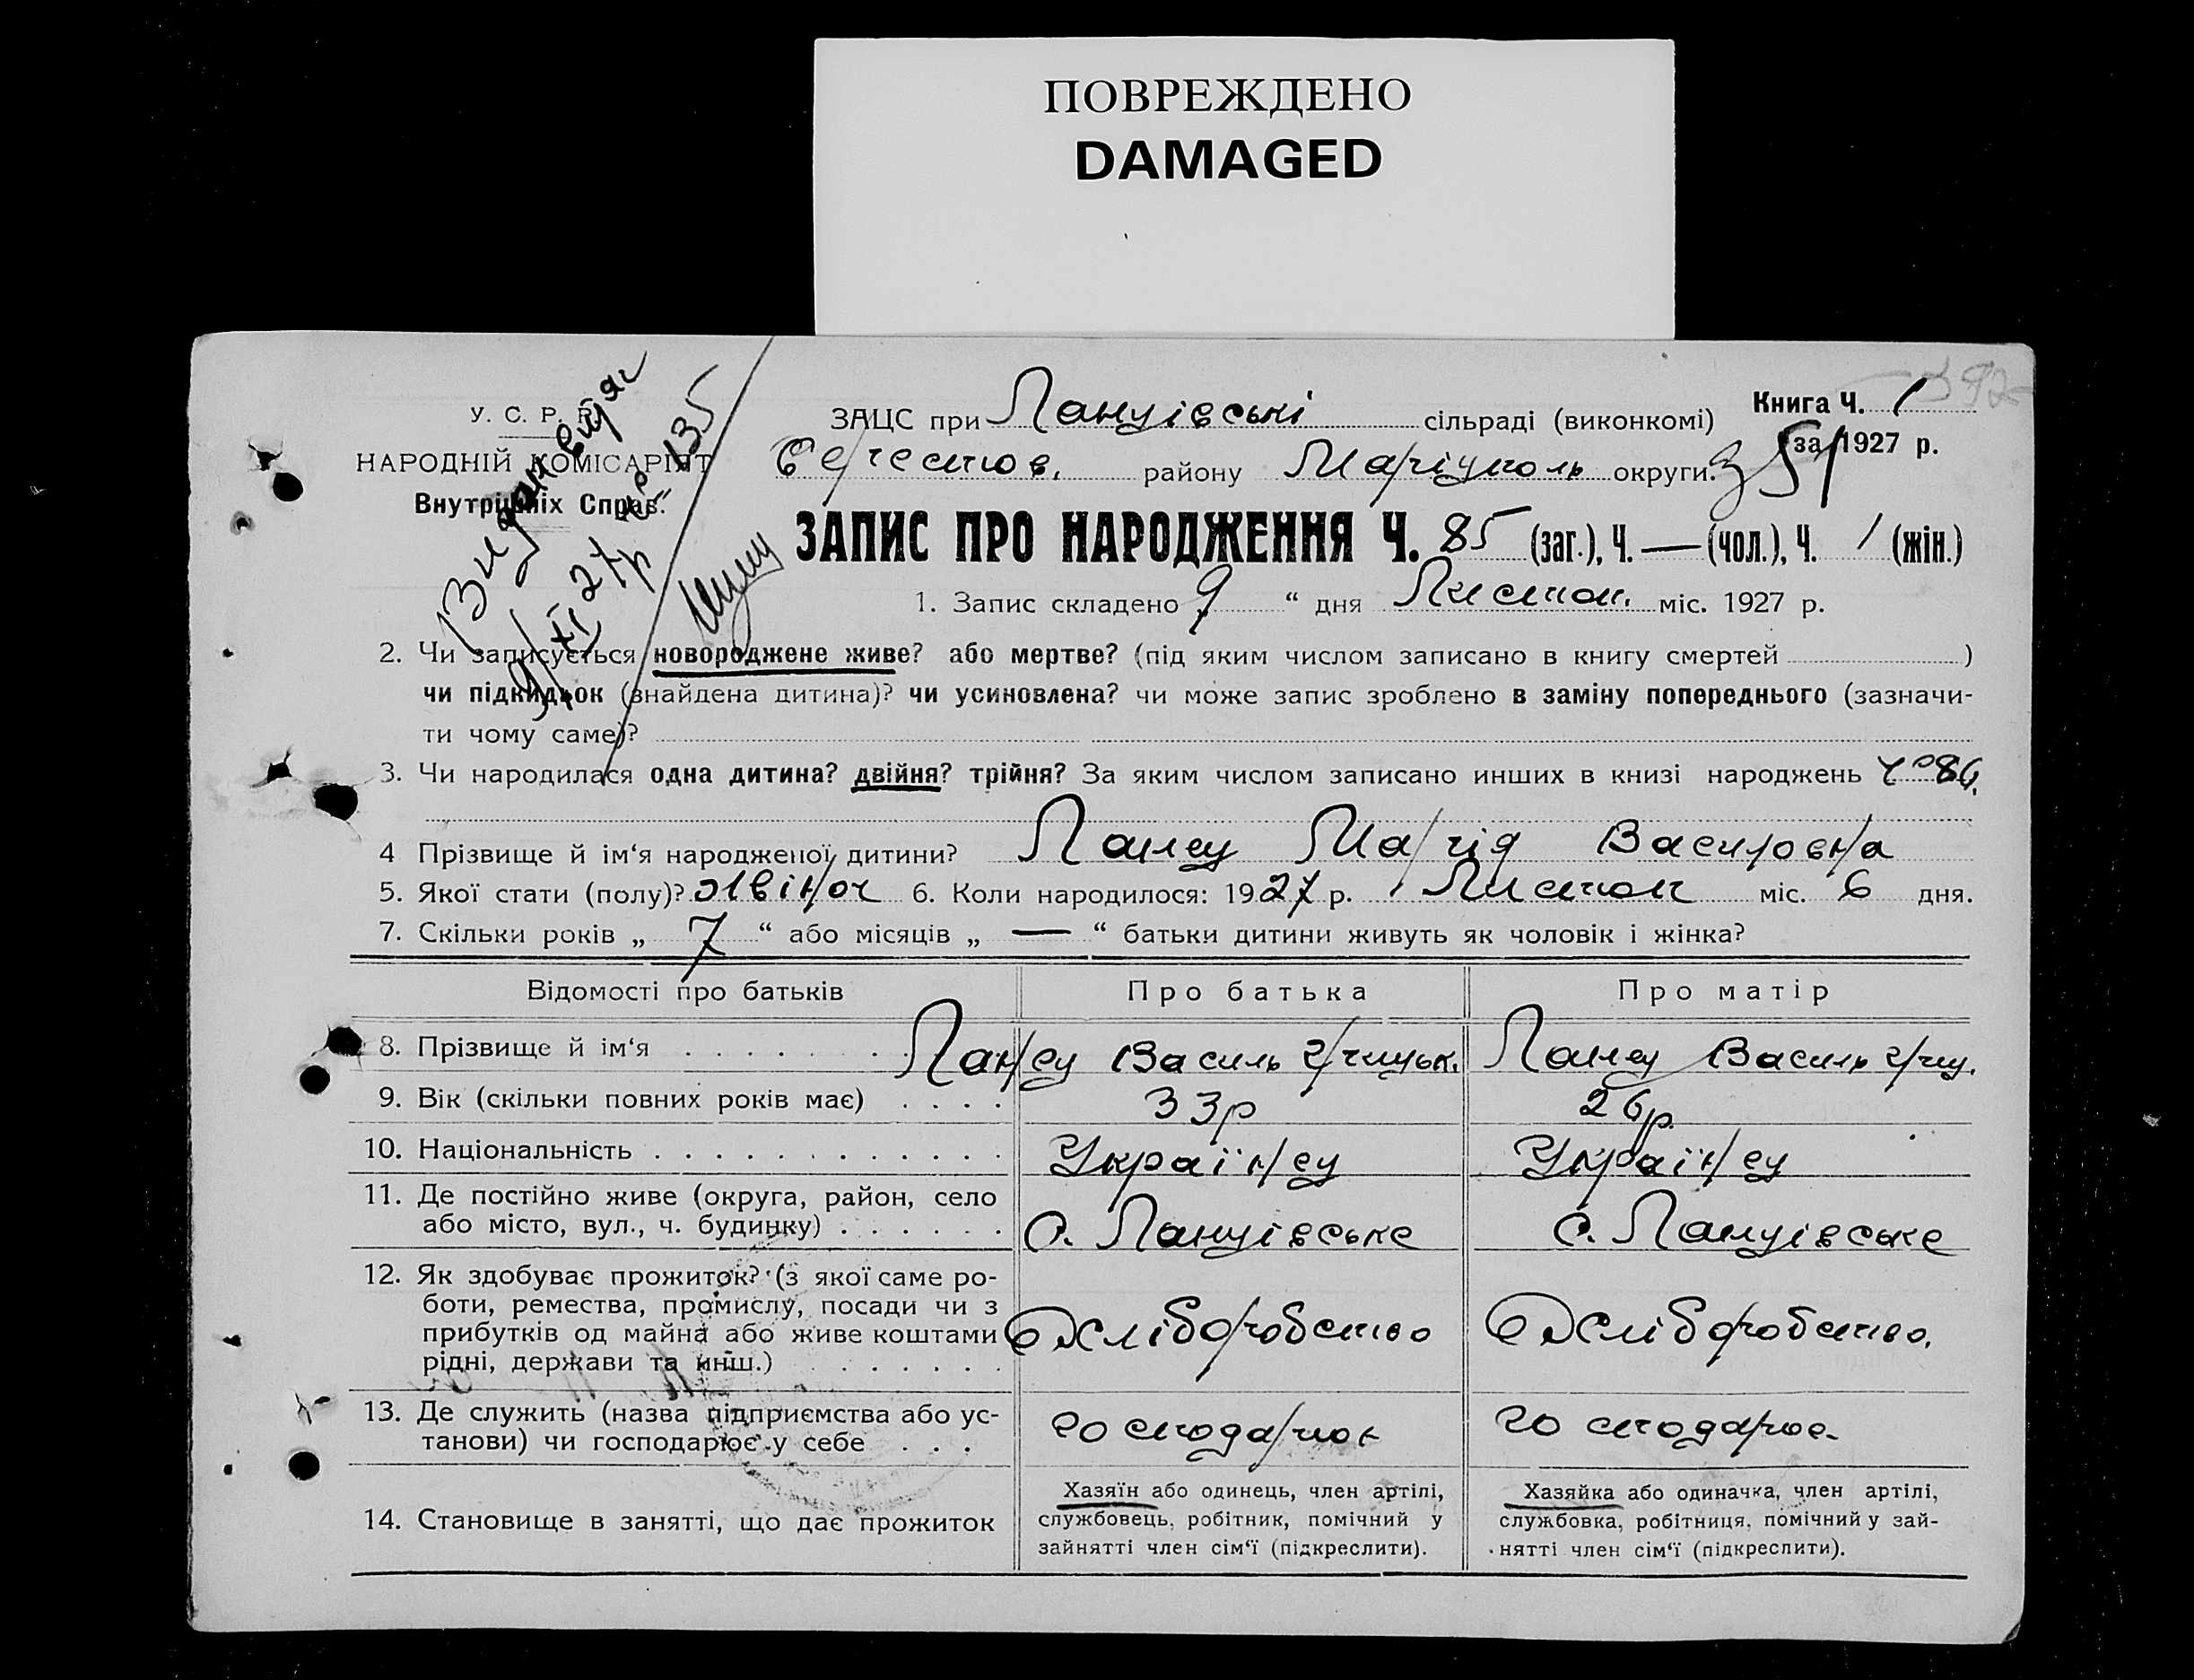 ПОВРЕЖДЕНО
DAMAGED
У. С. Р. Р.
НАРОДНІЙ КОМІСАРІЯТ
Внутрішніх Справ.
Видан витяг
9/XI 27р № 135
ЗАЦС при Лануівські сільраді (виконкомі)
Книга Ч. 1
за 1927 р.
району Маріуполь округи.
51
ЗАПИС ПРО НАРОДЖЕННЯ Ч. 85 (заг.), Ч. — (чол.), Ч. 1 (жін.)
1. Запис складено 9 “ дня Листоп. міс. 1927 р.
2. Чи записується новороджене живе? або мертве? (під яким числом записано в книгу смертей )
чи підкидьок (знайдена дитина)? чи усиновлена? чи може запис зроблено в заміну попереднього (зазначи-
ти чому саме)?
3. Чи народилася одна дитина? двійня? трійня? За яким числом записано инших в книзі народжень 86.
4 Прізвище й ім‘я народженої дитини? Василовна
5. Якої стати (полу)? жіноч 6. Коли народилося: 1927 р. Листоп міс. 6 дня.
7. Скільки років „ 7 “ або місяців „ — “ батьки дитини живуть як чоловік і жінка?
Відомості про батьків Про батька Про матір
8. Прізвище й ім‘я Василь Василь
9. Вік (скільки повних років має) 33р 26р.
10. Національність Українец Українец
11. Де постійно живе (округа, район, село
або місто, вул., ч. будинку) с. Лануівське с. Лануівське
12. Як здобуває прожиток? (з якої саме ро-
боти, ремества, промислу, посади чи з
прибутків од майна або живе коштами
рідні, держави та инш.) Хліборобство Хліборобство.
13. Де служить (назва підприємства або ус-
танови) чи господарює у себе господарює господарює
14. Становище в занятті, що дає прожиток
Хазяїн або одинець, член артілі,
службовець, робітник, помічний у
зайнятті член сім‘ї (підкреслити).
Хазяйка або одиначка, член артілі,
службовка, робітниця, помічний у зай-
нятті член сім‘ї (підкреслити).